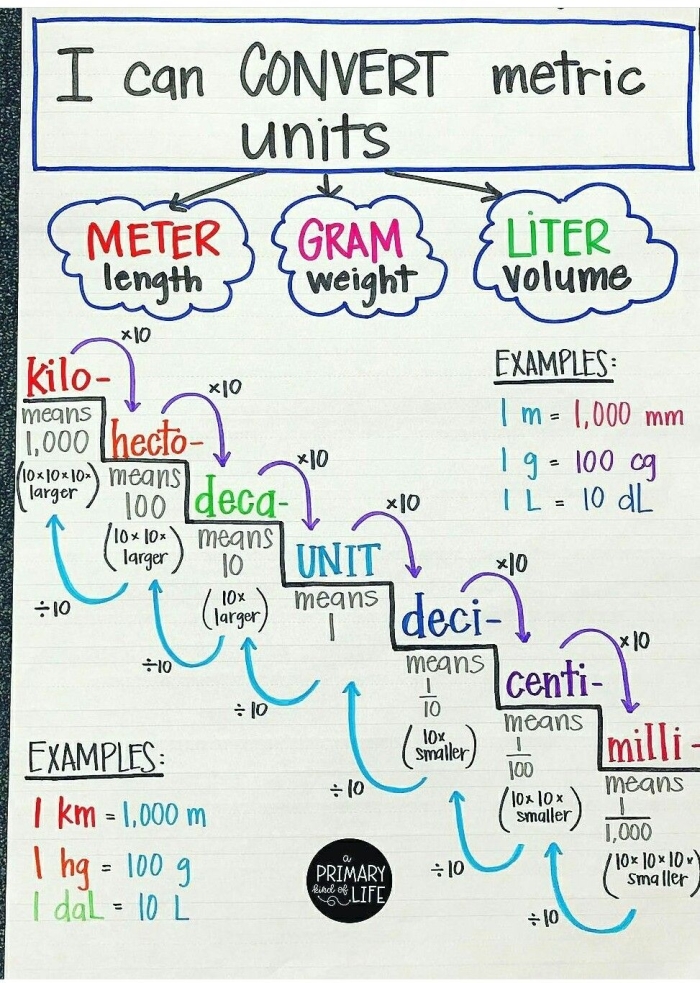 I can CONVERT metric
units
METER
length
GRAM
weight
LiTER
volume
kilo-
means
1,000
(10×10×10×
larger)
×10
hecto-
means
100
(10×10×
larger)
×10
deca-
means
10
(10×
larger)
×10
UNIT
means
1
×10
deci-
means
1
10
(10×
smaller)
×10
centi-
means
1
100
(10×10×
smaller)
×10
milli-
means
1
1,000
(10×10×10×
smaller)
÷10
÷10
÷10
÷10
÷10
÷10
EXAMPLES:
1 m = 1,000 mm
1 g = 100 cg
1 L = 10 dL
EXAMPLES:
1 km = 1,000 m
1 hg = 100 g
1 daL = 10 L
a
PRIMARY
kind of
LIFE